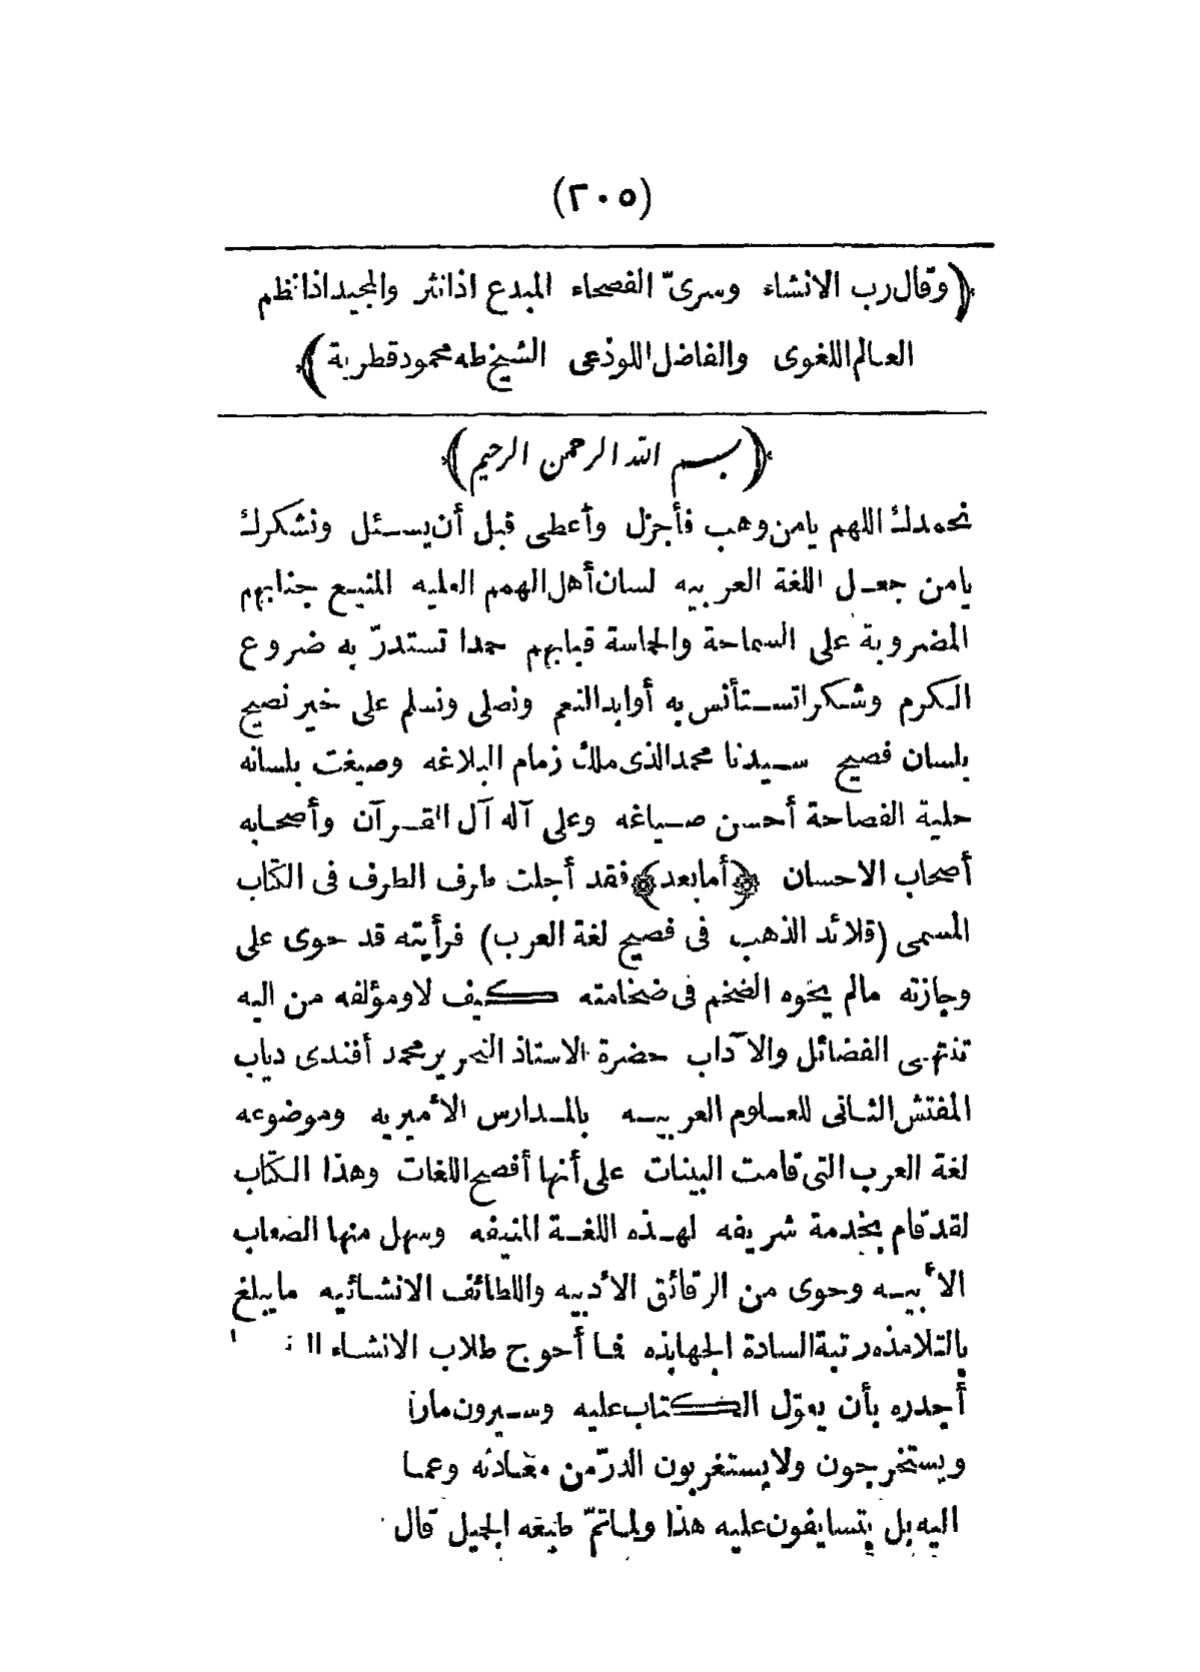 (٢٠٥)
﴿وقال رب الانشاء وسرىّ الفصحاء المبدع اذا نثر والمجيد اذا نظم
العالم اللغوى والفاضل اللوذعى الشيخ طه محمود قطرية﴾
﴿بسم الله الرحمن الرحيم﴾
نحمدك اللهم يامن وهب فأجزل وأعطى قبل أن يسئل ونشكرك
يامن جعل اللغة العربيه لسان أهل الهمم العليه المنيع جنابهم
المضروبة على السماحة والحماسة قبابهم حمدا تستدرّ به ضروع
الكرم وشكرا تستأنس به أوابد النعم ونصلى ونسلم على خير نصيح
بلسان فصيح سيدنا محمد الذى ملك زمام البلاغه وصيغت بلسانه
حلية الفصاحة أحسن صياغه وعلى آله آل القرآن وأصحابه
أصحاب الاحسان ﴿أما بعد﴾ فقد أجلت طرف الطرف فى الكتاب
المسمى (قلائد الذهب فى فصيح لغة العرب) فرأيته قد حوى على
وجازته مالم يحوه الضخم فى ضخامته كيف لا ومؤلفه من اليه
تنتهى الفضائل والآداب حضرة الاستاذ النحرير محمد أفندى دياب
المفتش الثانى للعلوم العربيه بالمدارس الأميريه وموضوعه
لغة العرب التى قامت البينات على أنها أفصح اللغات وهذا الكتاب
لقد قام بخدمة شريفه لهذه اللغة المنيفه وسهل منها الصعاب
الأبيه وحوى من الرقائق الأدبيه واللطائف الانشائيه مايبلغ
بالتلامذه رتبة السادة الجهابذه فما أحوج طلاب الانشاء
أجدره بأن يعوّل الكتاب عليه وسيرون
ويستخرجون ولا يستغربون الدرّ من معادنه وعما
اليه بل يتسايفون عليه هذا ولما تمّ طبعه الجميل قال